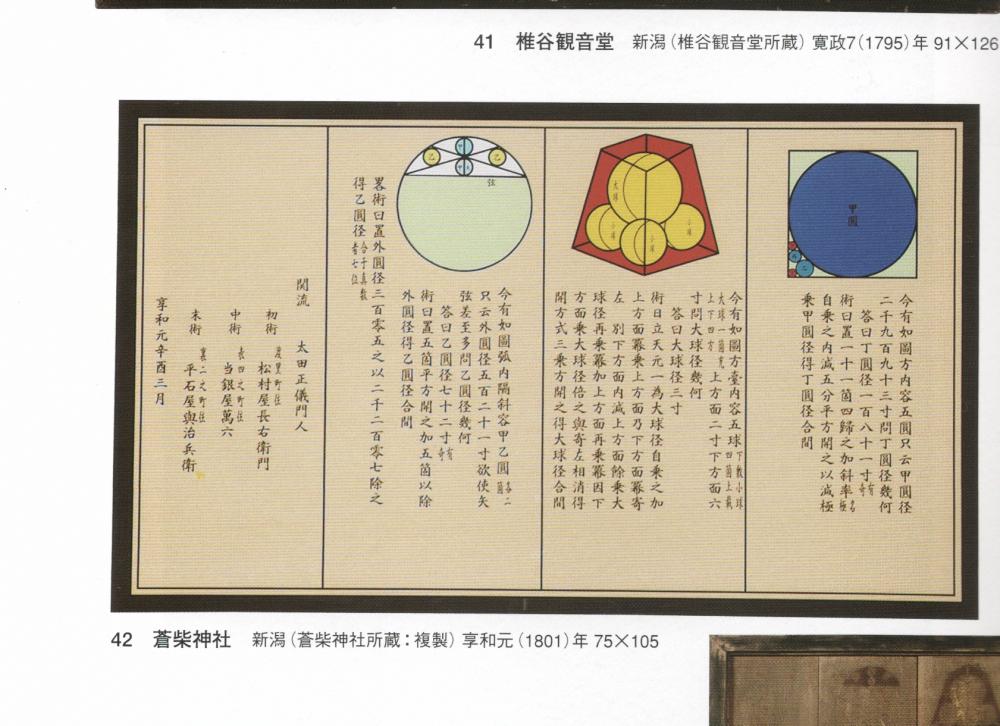 41 椎谷観音堂 新潟(椎谷観音堂所蔵)寛政7(1795)年 91×126
甲圓
今有如圖方内容五圓只云甲圓径
二千九百九十三寸問丁圓径幾何
答曰丁圓径一百八十一寸有奇
術曰置一十一箇四歸之加斜率名極
自乗之内減五分平方開之以減極
乗甲圓径得丁圓径合問
大球
小球
小球
小球
今有如圖方臺内容五球下敷小球四箇上載
大球一箇充上下四方上方面二寸下方面六
寸問大球径幾何
答曰大球径三寸
術曰立天元一為大球径自乗之加
上方面冪乗上方面乃下方面冪寄
左 別下方面内減上方面餘乗大
球径再乗冪加上方面再乗冪因下
方面乗大球径倍之與寄左相消得
開方式三乗方開之得大球径合問
甲
甲
乙
乙
弦
今有如圖弧内隔斜容甲乙圓各二箇
只云外圓径五百二十一寸欲使矢
弦差至多問乙圓径幾何
答曰乙圓径七十二寸有奇
術曰置五箇平方開之加五箇以除
外圓径得乙圓径合問
畧術曰置外圓径三百零五之以二千二百零七除之
得乙圓径合于真数者七位
関流 太田正儀門人
初術 松村屋長右衛門
中術 表四之町住 当銀屋萬六
末術 裏二之町住 平石屋與治兵衛
享和元辛酉三月
42 蒼柴神社 新潟(蒼柴神社所蔵:複製)享和元(1801)年 75×105